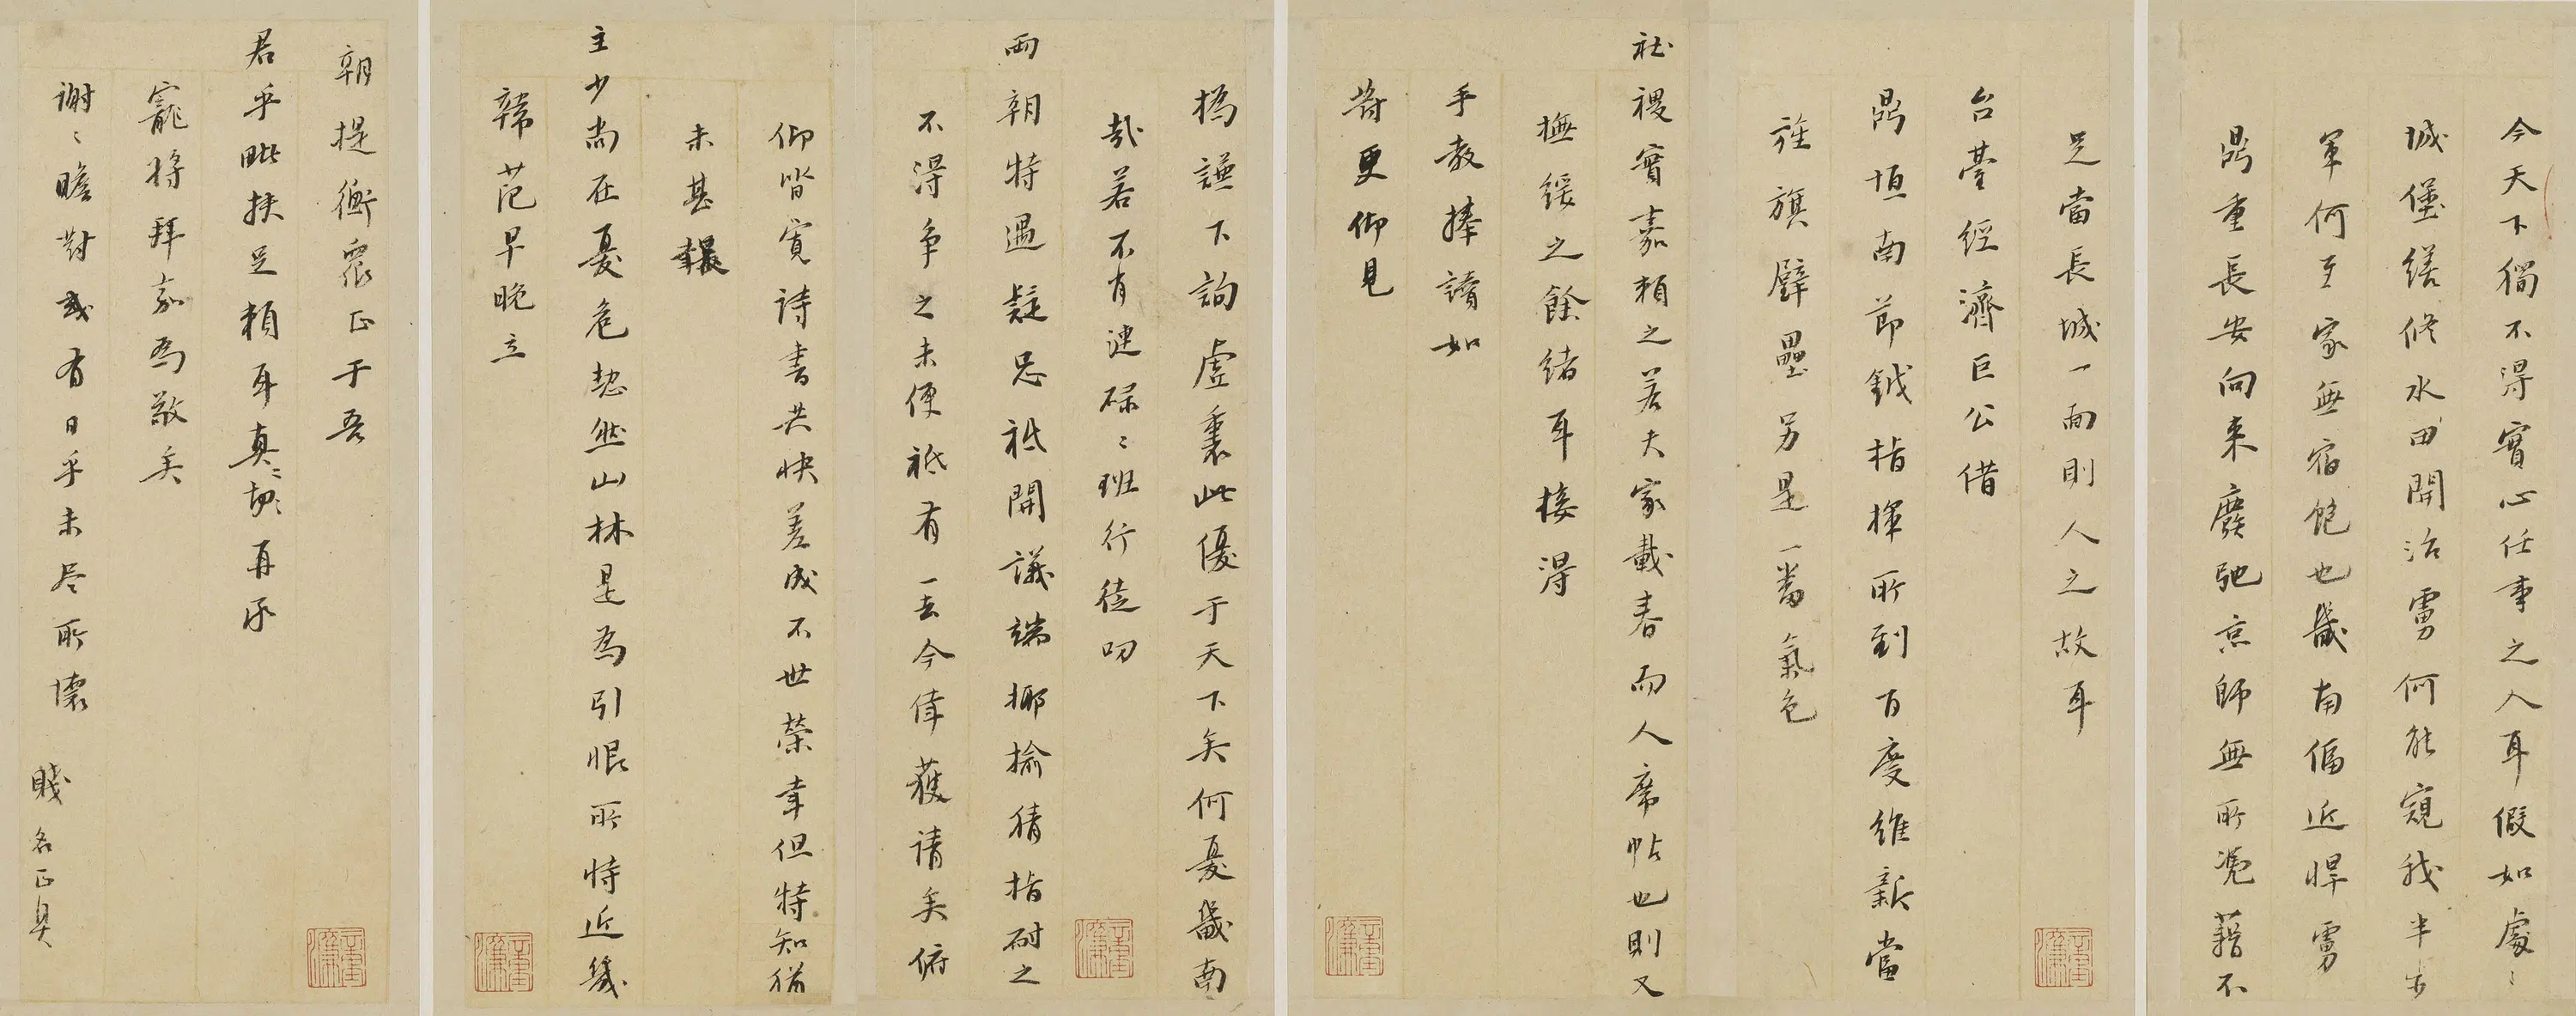 今天下獨不得實心任事之人耳假如處〻
城堡繕修水田開治虜何能窺我半步
軍何至家無宿飽也畿南偪近悍虜
鼎重長安向來廢弛京師無所憑藉不
足當長城一面則人之故耳
台臺經濟巨公借
鼎垣南節鉞指揮所到百度維新當
旌旗壁壘另是一番氣色
社稷實嘉賴之若夫家載春而人席帖也則又
撫綏之餘緒耳接得
手教捧讀如
對更仰見
撝謙下詢虛裏此優于天下矣何憂畿南
哉若不肖逮碌〻班行徒叨
兩朝特遇疑忌祗開議端揶揄猜指耐之
不得爭之未便祗有一去今倖獲請矣俯
仰皆寬詩書共快差成不世榮幸但特知猶
未甚報
主少尚在憂危恝然山林是為引恨所恃近畿
韓范早晚立
朝提衡眾正于吾
君乎毗扶足賴耳真〻切〻再承
寵將拜嘉為敬矣
謝〻瞻對或有日乎未盡所懷
賤名正具